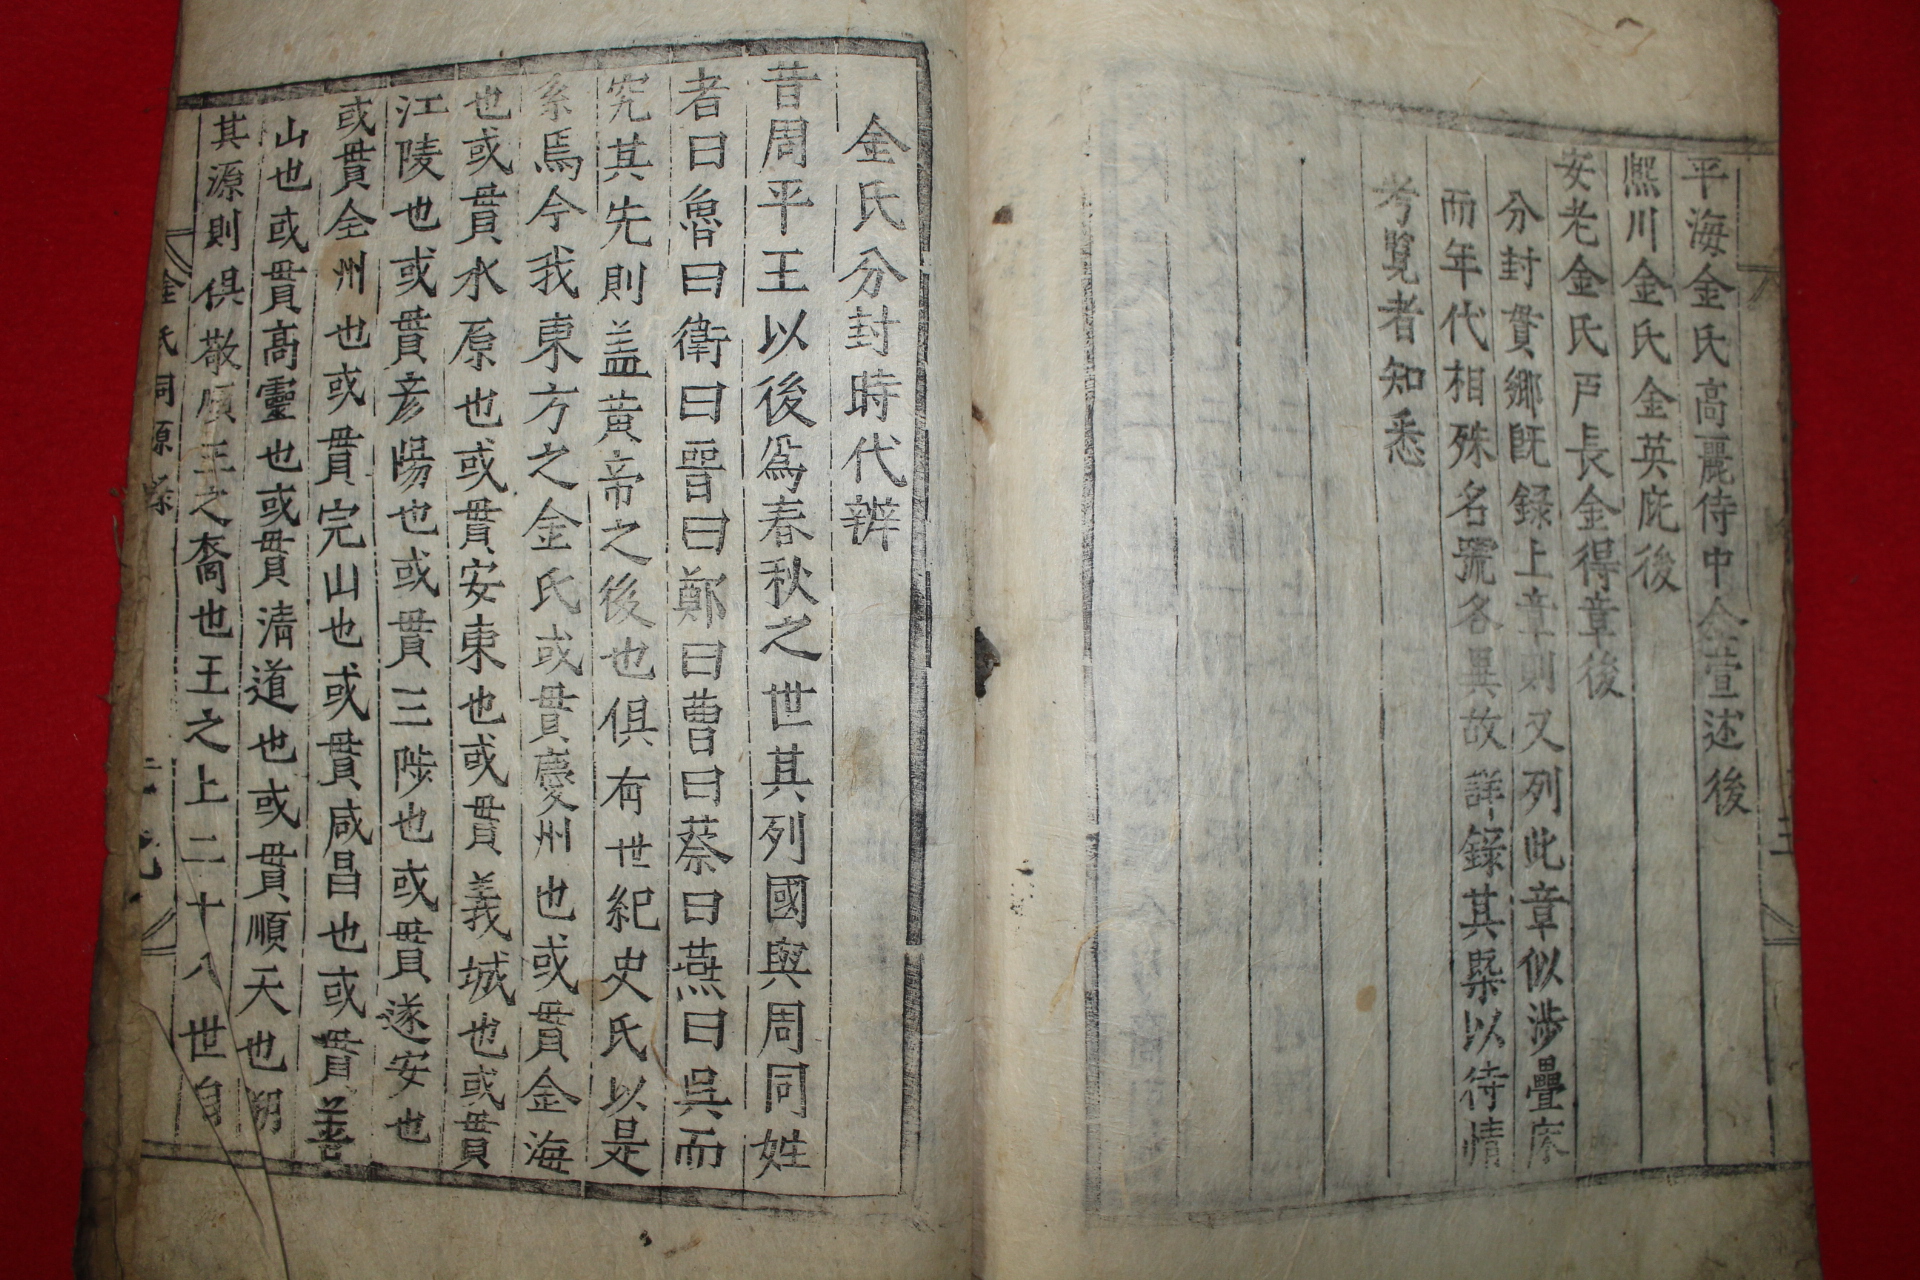 平海金氏高麗侍中金萱述後
熈川金氏金英庇後
安老金氏戸長金得章後
分封貫鄉旣録上章則又列此章似涉疊床
而年代相殊名號各異故詳録其槩以待情
考覧者知悉
金氏分封時代辨
昔周平王以後爲春秋之世其列國與周同姓
者曰魯曰衛曰晋曰鄭曰曹曰蔡曰燕曰吳而
究其先則盖黃帝之後也俱有世紀史氏以是
系焉今我東方之金氏或貫慶州也或貫金海
也或貫水原也或貫安東也或貫義城也或貫
江陵也或貫彦陽也或貫三陟也或貫遂安也
或貫全州也或貫完山也或貫咸昌也或貫善
山也或貫高靈也或貫淸道也或貫順天也朔
其源則俱敬順王之裔也王之上二十八世自
金氏同源錄